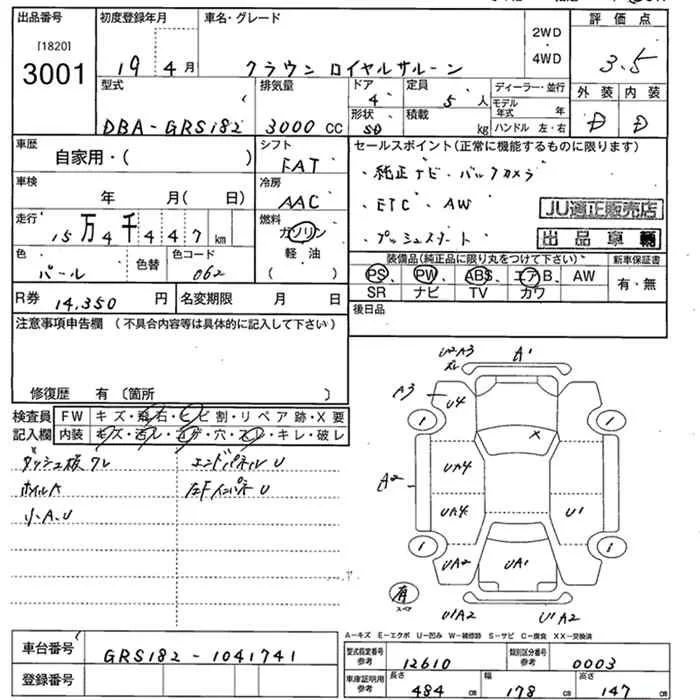 出品番号 初度登録年月 車名・グレード 2WD・4WD 評価点
[1820]
3001
19年 4月 クラウン ロイヤルサルーン 3.5
型式 排気量 ドア 4 定員 5人 ディーラー・並行 外装 内装
DBA-GRS182 3000 CC 形状 SD 積載 kg モデル年式 年 ハンドル 左・右 D D
車歴 シフト セールスポイント(正常に機能するものに限ります)
自家用・( ) FAT ・純正ナビ・バックカメラ
車検 冷房
年 月( 日) AAC ・ETC・AW JU適正販売店
走行 燃料
15万4千447km ガソリン 軽油 ( ) ・プッシュスタート 出品車輌
色 色替 色コード 装備品(純正品に限り丸をつけて下さい) 新車保証書
パール 062 PS、PW、ABS、エアB、AW 有・無
SR ナビ TV カワ
R券 14,350円 名変期限 月 日 後日品
注意事項申告欄(不具合内容等は具体的に記入して下さい)
修復歴 有〔箇所 〕
検査員記入欄 FW キズ・飛石・ヒビ割・リペア跡・X要
内装 キズ・汚レ・コゲ・穴・スレ・キレ・破レ
ダッシュ板クレ エンドパネルU
ホイルA 左Fインパネ U
小A.U
U2A3 A1
A3 U4
1 1
X
A2 UA4
UA4 U1
1 1
UA2 UA1
有 スペア
U1A2 U1A2
A-キズ E-エクボ U-凹み W-補修跡 S-サビ C-腐食 XX-交換済
車台番号 GRS182-1041741
型式指定番号 参考 12610 類別区分番号 参考 0003
登録番号
車庫証明用 参考 長さ 484 cm 幅 178 cm 高さ 147 cm